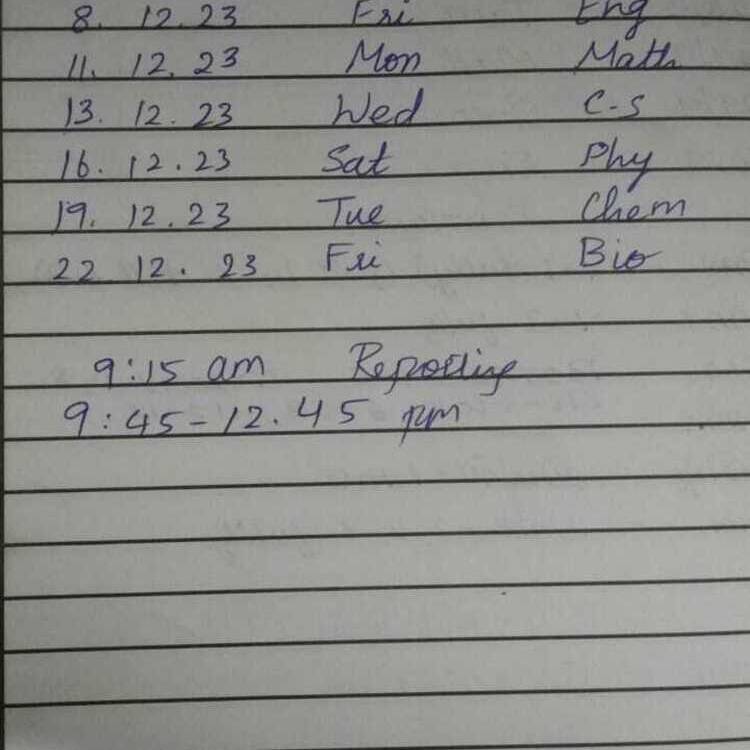 8. 12.23 Fri Eng
11. 12.23 Mon Math
13. 12.23 Wed C-S
16. 12.23 Sat Phy
19. 12.23 Tue Chem
22 12. 23 Fri Bio
9:15 am Reporting
9:45-12.45 pm